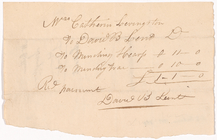 Mrs Catharin Livingston
To David B Lent Dr
To Mending 0 11 0
To Mending 0 10 0
£ 1 1 0
Rd payment
David B Lent